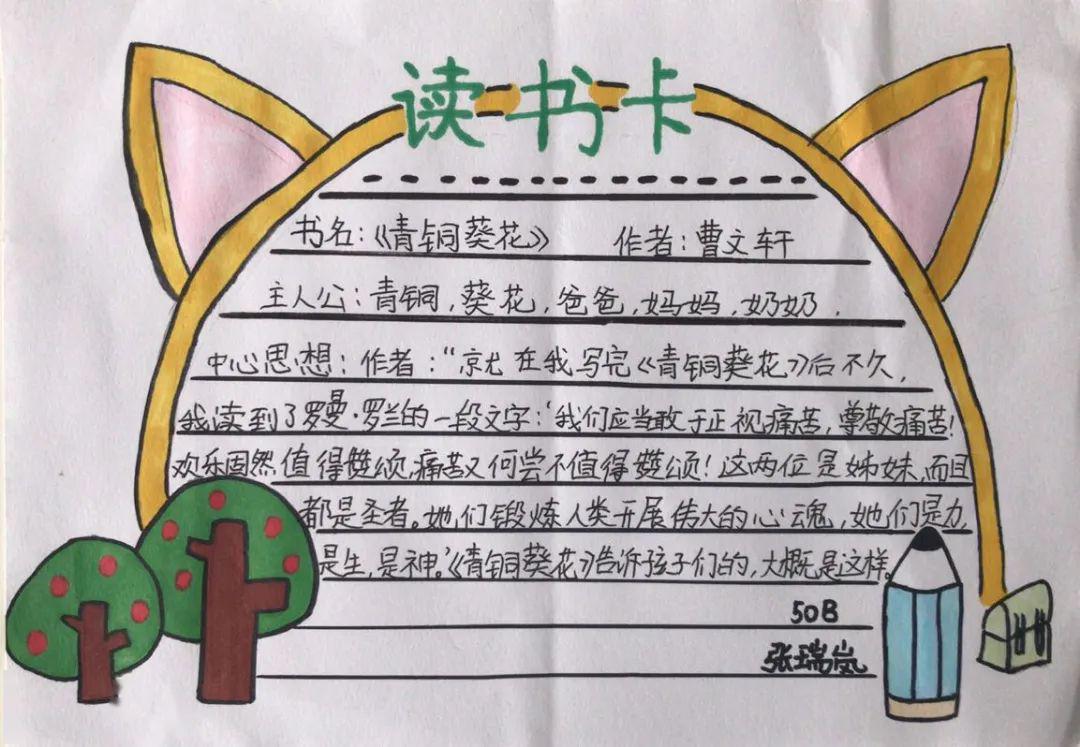 读书卡
书名:《青铜葵花》 作者:曹文轩
主人公:青铜,葵花,爸爸,妈妈,奶奶.
中心思想:作者:“就在我写完《青铜葵花》后不久,
我读到了罗曼·罗兰的一段文字:‘我们应当敢于正视痛苦,尊敬痛苦!
欢乐固然值得赞颂,痛苦又何尝不值得赞颂!这两位是姊妹,而且
都是圣者。她们锻炼人类开展伟大的心魂,她们是力,
是生,是神。’《青铜葵花》告诉孩子们的,大概是这样。
50B
张瑞岚